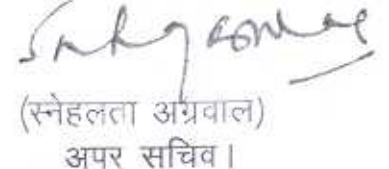 (स्नेहलता अग्रवाल)
अपर सचिव।